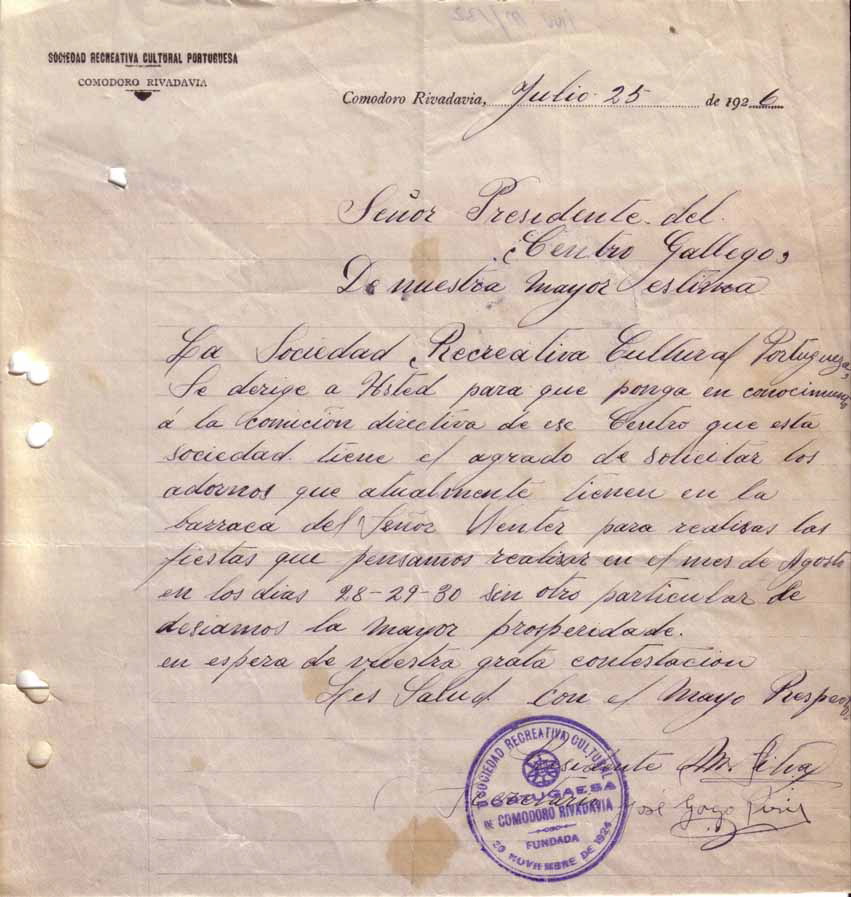 SOCIEDAD RECREATIVA CULTURAL PORTUGUESA
COMODORO RIVADAVIA
Comodoro Rivadavia, Julio 25 de 1926
Señor Presidente del
Centro Gallego,
De nuestra mayor estima
La Sociedad Recreativa Cultural Portugueza,
Se derige a Usted para que ponga en conocimiento
á la comición directiva de ese Centro que esta
sociedad tiene el agrado de solicitar los
adornos que atualmente tienen en la
barraca del Señor Venter para realisas las
fiestas que pensamos realisar en el mes de Agosto
en los dias 28-29-30 sin otro particular de
desiamos la mayor prosperidade.
en espera de vuestra grata contestacion
Les Salud con el Mayo Respeto
Presidente M. Silva
Secretario José
SOCIEDAD RECREATIVA CULTURAL
PORTUGAESA
DE COMODORO RIVADAVIA
FUNDADA
29 NOVIEMBRE DE 1924